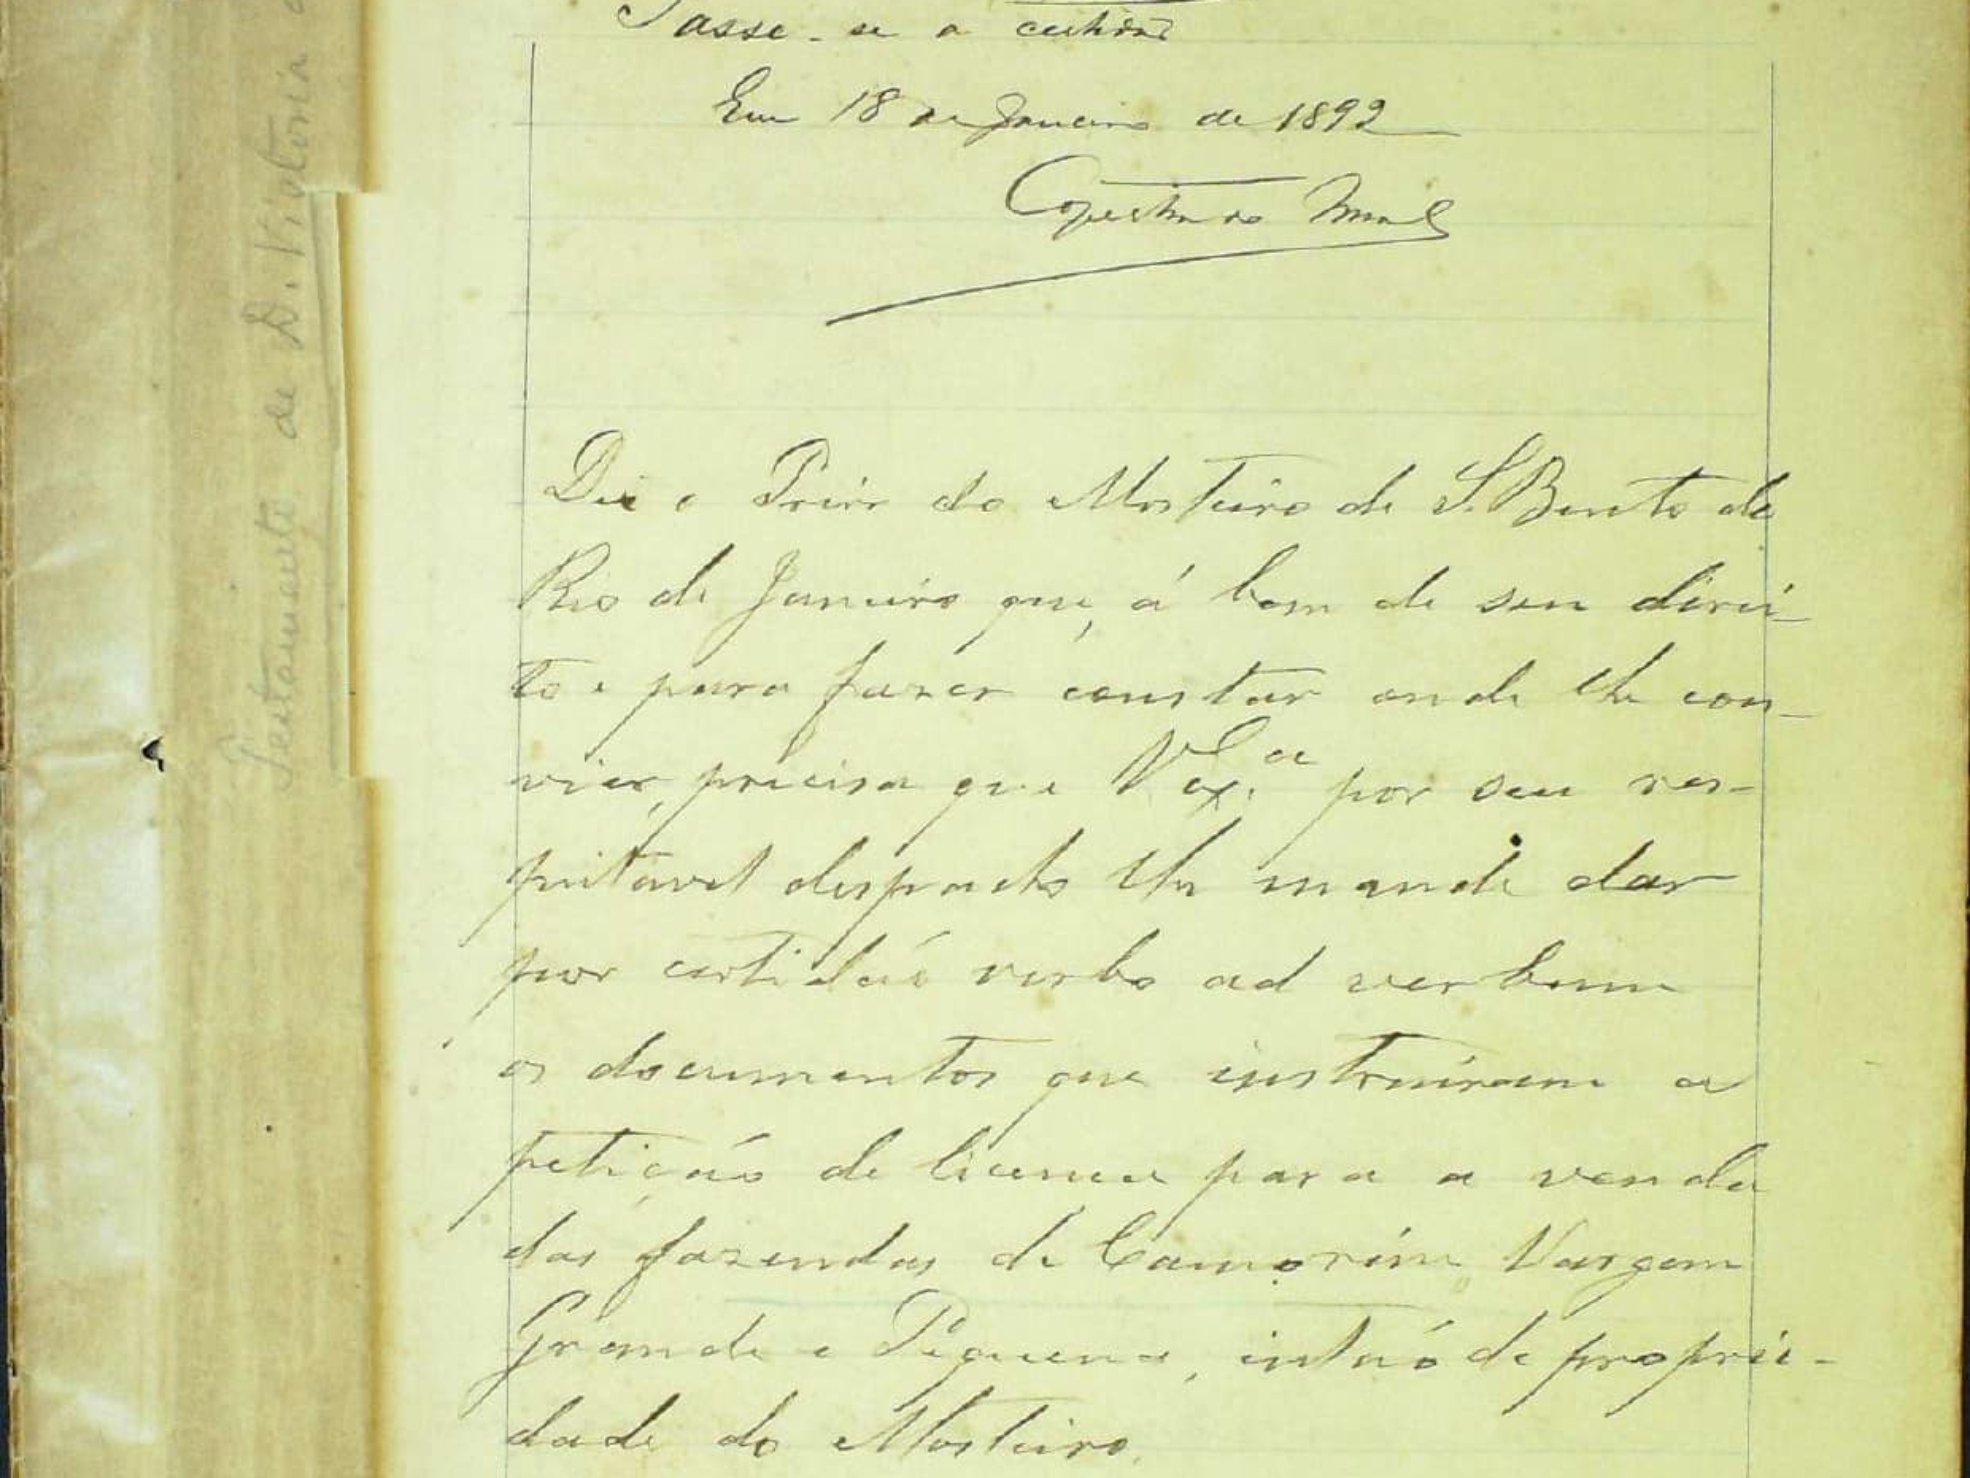 Passe-se a certidão
Em 18 de Janeiro de 1892
Testamento de D. Victoria
Diz o Prior do Mosteiro de S. Bento do
Rio de Janeiro que, á bem de seu direi-
to e para fazer constar onde lhe con-
vier, precisa que V Ex.ª por seu res-
peitavel despacho lhe mande dar
por certidaó verbo ad verbum
os documentos que instruiram a
petiçaó de licença para a venda
das fazendas de Camorim, Vargem
Grande e Pequena, entaó de proprie-
dade do Mosteiro.